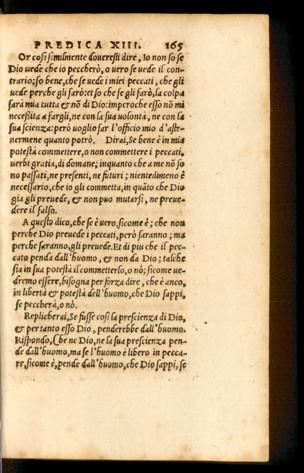 PREDICA XIII. 165
Or cosi similmente doveresti dire, Io non so se
Dio vede che io peccherò, o vero se vede il con
trario; so bene, che se vede i miei peccati, che gli
vede perche gli farò: et so che se gli farò, la colpa
sarà mia tutta & nõ di Dio: imperoche esso nõ mi
necessita a fargli, ne con la sua volontà, ne con la
sua scienza: però voglio far l'officio mio d'aste-
nermene quanto potrò. Dirai, Se bene è in mia
potestà commettere, o non commettere i peccati,
verbi gratia, di domane; inquanto che a me nõ so
no passati, ne presenti, ne futuri; nientedimeno è
necessario, che io gli commetta, in quãto che Dio
gia gli prevede, & non puo mutarsi, ne preve-
dere il falso.
A questo dico, che se è vero, sicome è; che non
perche Dio prevede i peccati, però saranno; ma
perche saranno, gli prevede. Et di piu che il pec-
cato penda dall'huomo, & non da Dio; talche
sia in sua potestà il commetterlo, o nò; sicome ve-
dremo essere, bisogna per forza dire, che è anco,
in libertà & potestà dell'huomo, che Dio sappi,
se peccherà, o nò.
Replicherai, Se fusse cosi la prescienza di Dio,
& per tanto esso Dio, penderebbe dall'huomo.
Rispondo, Che ne Dio, ne la sua prescienza pen-
de dall'huomo, ma se l'huomo è libero in pecca-
re, sicome è, pende dall'huomo, che Dio sappi, se